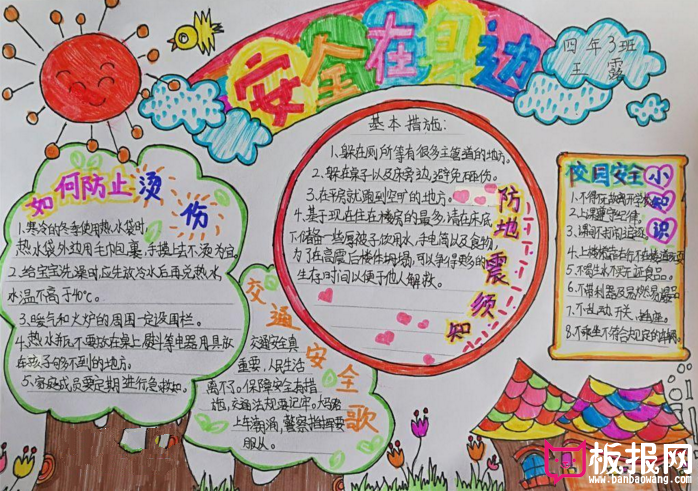 安全在身边
四年3班
王露
如何防止烫伤
1.寒冷的冬季使用热水袋时,
热水袋外边用毛巾包裹,手摸上去不烫为宜。
2.给宝宝洗澡时应先放冷水后再兑热水,
水温不高于40℃。
3.暖气和火炉的周围一定设围栏。
4.热水瓶不要放在桌上,熨斗等电器用具放
在孩子够不到的地方。
5.家庭成员要定期进行急救
基本措施:
1.躲在厕所等有很多主管道的地方。
2.躲在桌子以及床旁边,避免砸伤。
3.在平房就跑到空旷的地方。
4.基于现在住在楼房的最多,请在床底
下储备一些厚被子饮用水,手电筒以及食物,
为了在高震后楼体坍塌,可以争得更多的
生存时间以便于他人解救。
防地震须知
交通安全歌
交通安全真
重要,人民生活
离不了。保障安全有措
施,交通法规要记牢。
上车
服从。
校园安全小知识
2.上课遵守纪律。
5.不喝生水不买
6.不带利器及易燃易爆品
7.不乱动开关、插座。
8.不乘坐不符合规定的车辆。
板报网
www.banbaowang.com